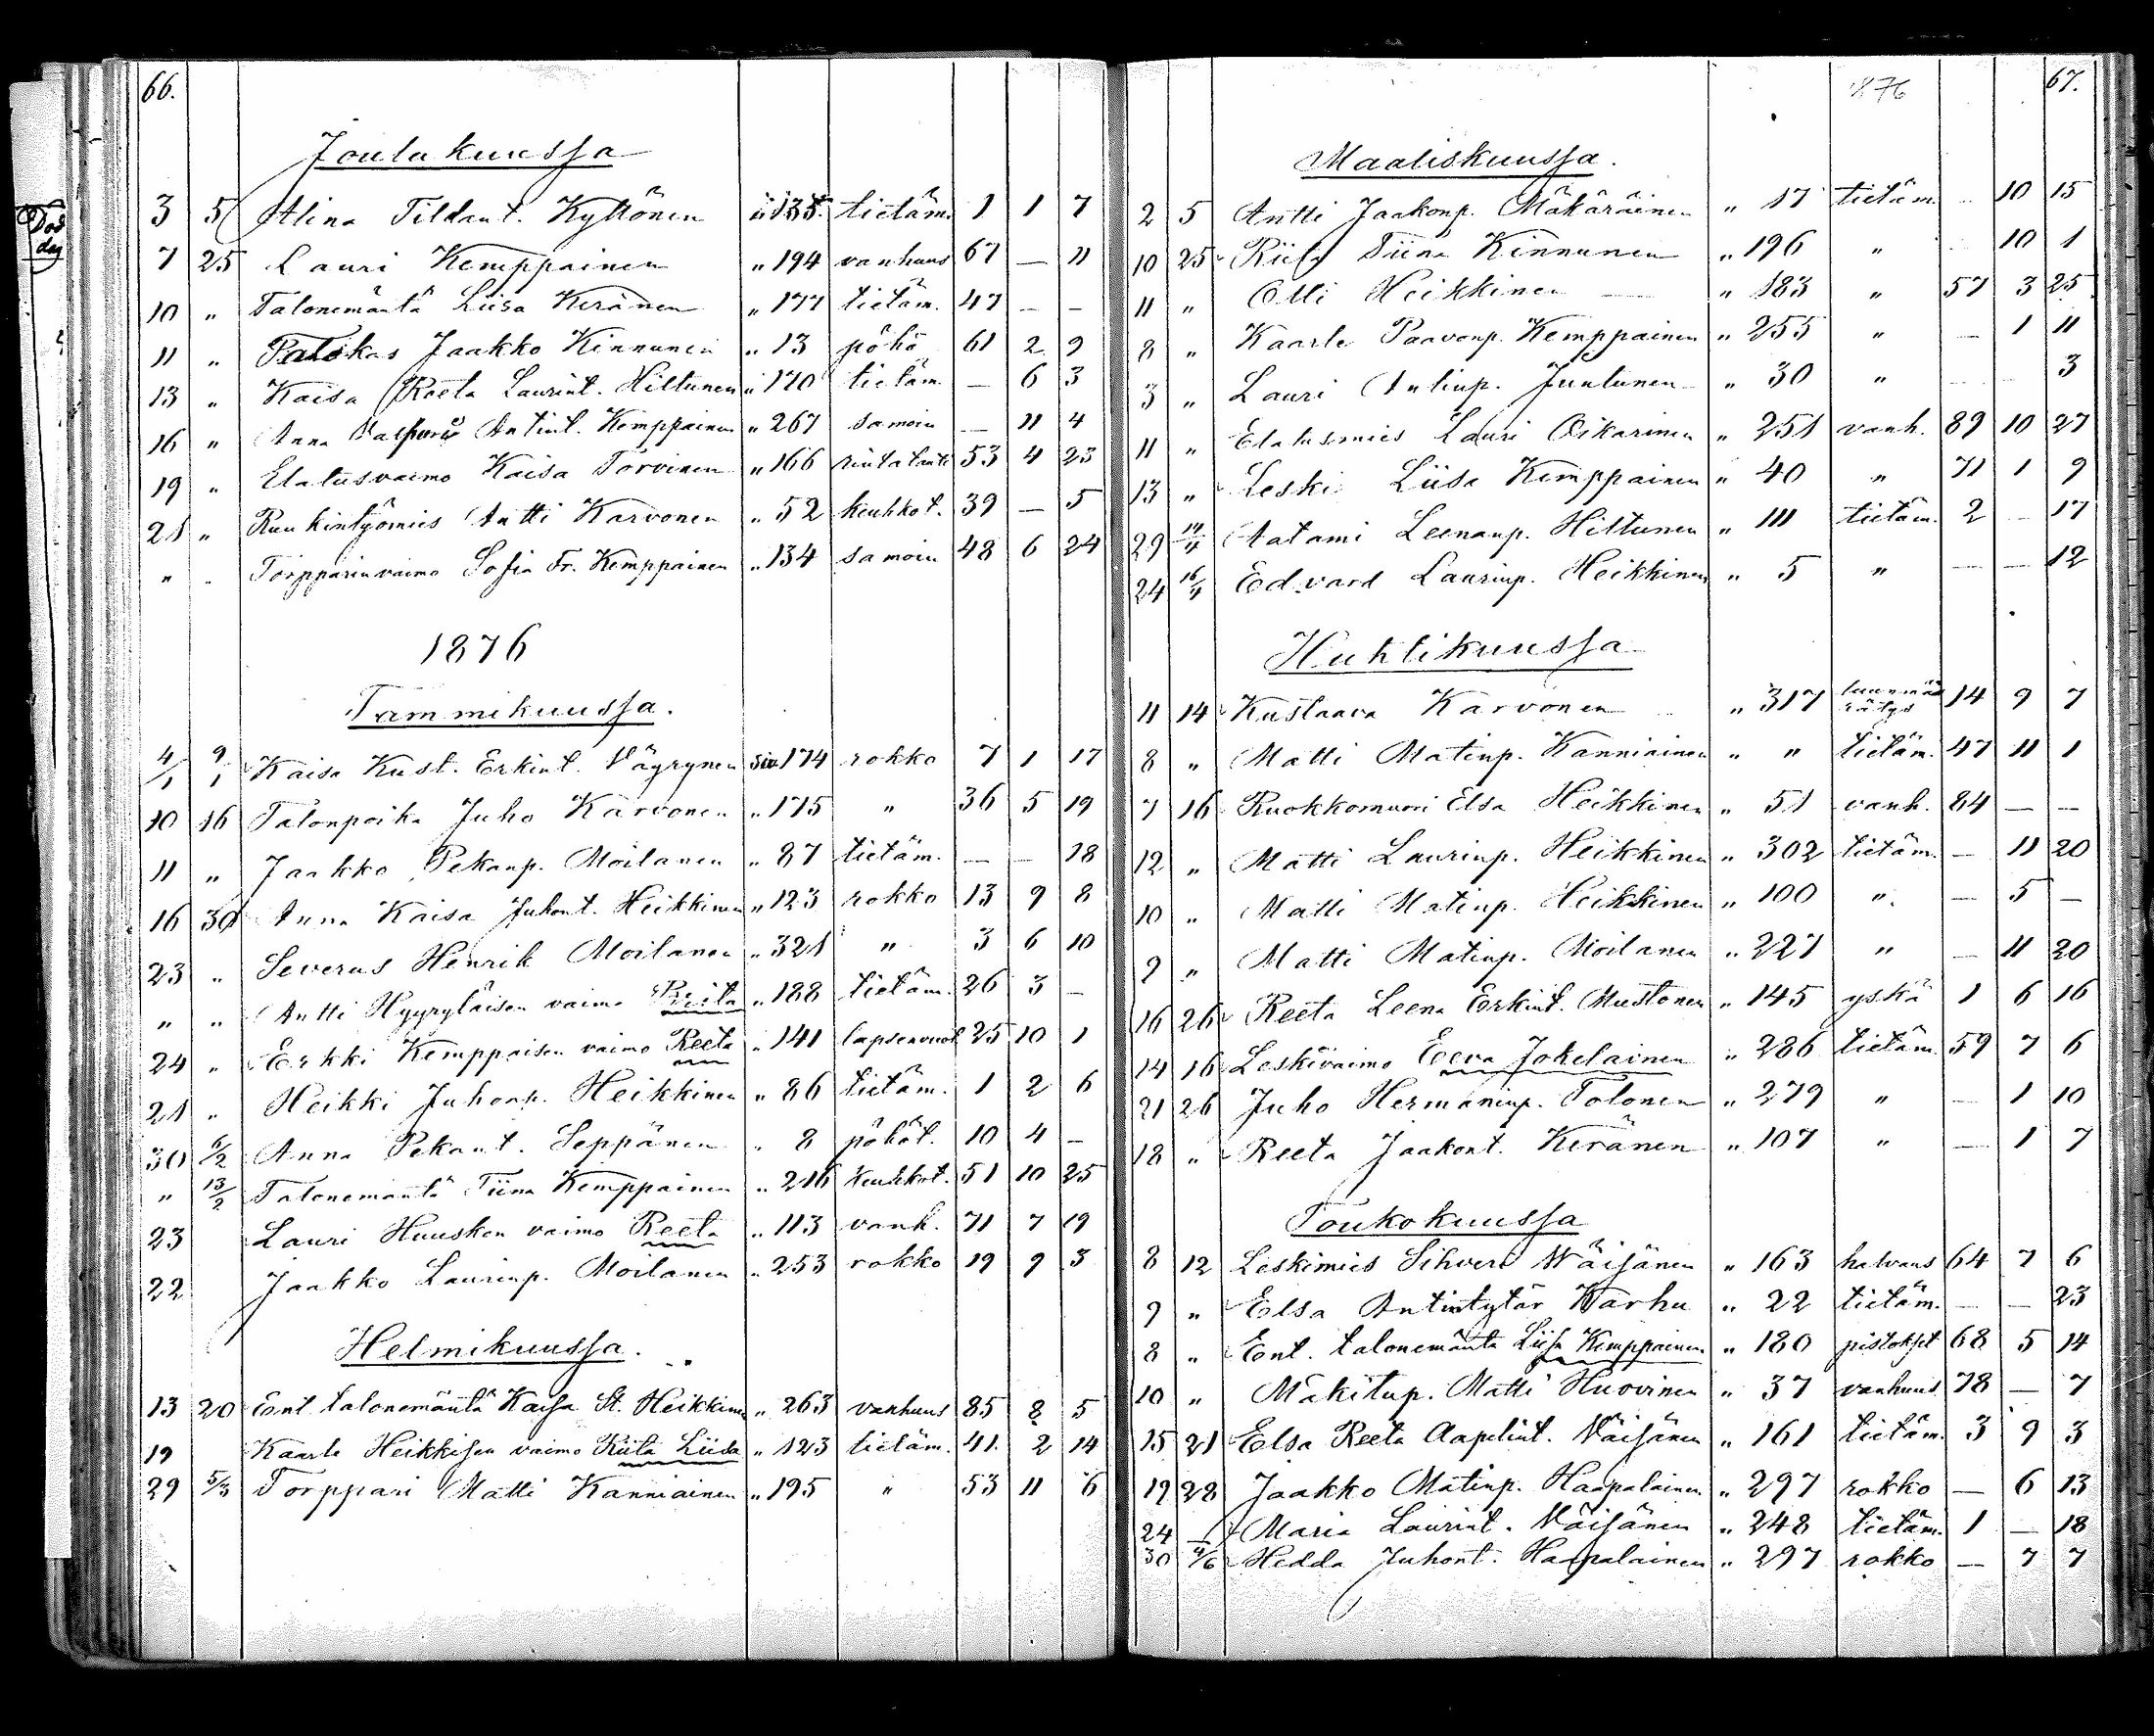 66.
Joulukuussa
3 5 Alina Tildant. Kyllönen siv. 135. tietäm. 1 1 7
7 25 Lauri Kemppainen " 194 vanhuus 67 — 11
10 " Talonemäntä Liisa Keränen " 177 tietäm. 47 — —
11 " Jaakko Kinnunen " 13 pöhö 61 2 9
13 " Kaisa Reeta Laurint. Hiltunen " 170 tietäm. — 6 3
16 " Anna Antint. Kemppainen " 267 samoin — 11 4
19 " Elatusvaimo Kaisa Torvinen " 166 rintatauti 53 4 23
21 " Ruukintyömies Antti Karvonen " 52 keuhkot. 39 — 5
" " Torpparinvaimo Sofia Fr. Kemppainen " 134 samoin 48 6 24
1876
Tammikuussa.
4/1 9/1 Kaisa Kust. Erkint. Väyrynen siv. 174 rokko 7 1 17
10 16 Talonpoika Juho Karvonen " 175 " 36 5 19
11 " Jaakko Pekanp. Moilanen " 87 tietäm. — — 18
16 30 Anna Kaisa Juhont. Heikkinen " 123 rokko 13 9 8
23 " Severus Henrik Moilanen " 321 " 3 6 10
" " Antti Hyyryläisen vaimo Priita " 188 tietäm. 26 3 —
24 " Erkki Kemppaisen vaimo Reeta " 141 lapsenvuot. 25 10 1
21 " Heikki Juhonp. Heikkinen " 86 tietäm. 1 2 6
30 6/2 Anna Pekant. Seppänen " 8 pöhöt. 10 4 —
" 13/2 Talonemäntä Tiina Kemppainen " 216 keuhkot. 51 10 25
23 Lauri Huusken vaimo Reeta " 113 vanh. 71 7 19
22 Jaakko Laurinp. Moilanen " 253 rokko 19 9 3
Helmikuussa.
13 20 Ent. talonemäntä Kaisa St. Heikkinen " 263 vanhuus 85 8 5
19 Kaarle Heikkisen vaimo Riita Liisa " 123 tietäm. 41. 2 14
29 5/3 Torppari Matti Kanniainen " 195 " 53 11 6
1876 67.
Maaliskuussa.
2 5 Antti Jaakonp. Mäkäräinen " 17 tietäm. — 10 15
10 25 Riita Tiina Kinnunen " 196 " 10 1
11 " Olli Heikkinen " 183 " 57 3 25
8 " Kaarle Paavonp. Kemppainen " 255 " — 1 11
3 " Lauri Antinp. Juntunen " 30 " — — 3
11 " Elatusmies Lauri Oikarinen " 251 vanh. 89 10 27
13 " Leski Liisa Kemppainen " 40 " 71 1 9
29 14/4 Aatami Leenanp. Hiltunen " 111 tietäm. 2 — 17
24 16/4 Edvard Laurinp. Heikkinen " 5 " — — 12
Huhtikuussa
11 14 Kustaava Karvonen " 317 14 9 7
8 " Matti Matinp. Kanniainen " " tietäm. 47 11 1
7 16 Ruokkomuori Elsa Heikkinen " 51 vanh. 84 — —
12 " Matti Laurinp. Heikkinen " 302 tietäm. — 11 20
10 " Matti Matinp. Heikkinen " 100 " — 5 —
9 " Matti Matinp. Moilanen " 227 " — 11 20
16 26 Reeta Leena Erkint. Mustonen " 145 yskä 1 6 16
14 16 Leskivaimo Eeva Jokelainen " 286 tietäm. 59 7 6
21 26 Juho Hermaninp. Tolonen " 279 " — 1 10
18 " Reeta Jaakont. Keränen " 107 " — 1 7
Toukokuussa
8 12 Leskimies Sihveri Wäisänen " 163 halvaus 64 7 6
9 " Elsa Antintytär Karhu " 22 tietäm. — — 23
8 " Ent. talonemäntä Liisa Kemppainen " 180 pistokset 68 5 14
10 " Mäkitup. Matti Huovinen " 37 vanhuus 78 — 7
15 21 Elsa Reeta Aapelint. Väisänen " 161 tietäm. 3 9 3
19 28 Jaakko Matinp. Haapalainen " 297 rokko — 6 13
24 — Maria Laurint. Väisänen " 248 tietäm. 1 — 18
30 4/6 Hedda Juhont. Haapalainen " 297 rokko — 7 7